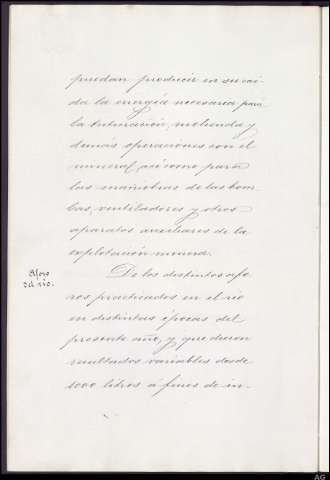 puedan producir en su cai-
da la energía necesaria para
la trituración, molienda y
demás operaciones con el
mineral, así como para
las maniobras de las bom-
bas, ventiladores y otros
aparatos auxiliares de la
explotación minera.
Aforo
del rio.
De los distintos afo-
ros practicados en el rio
en distintas épocas del
presente año, y que dieron
resultados variables desde
1000 litros á fines de in-
AG